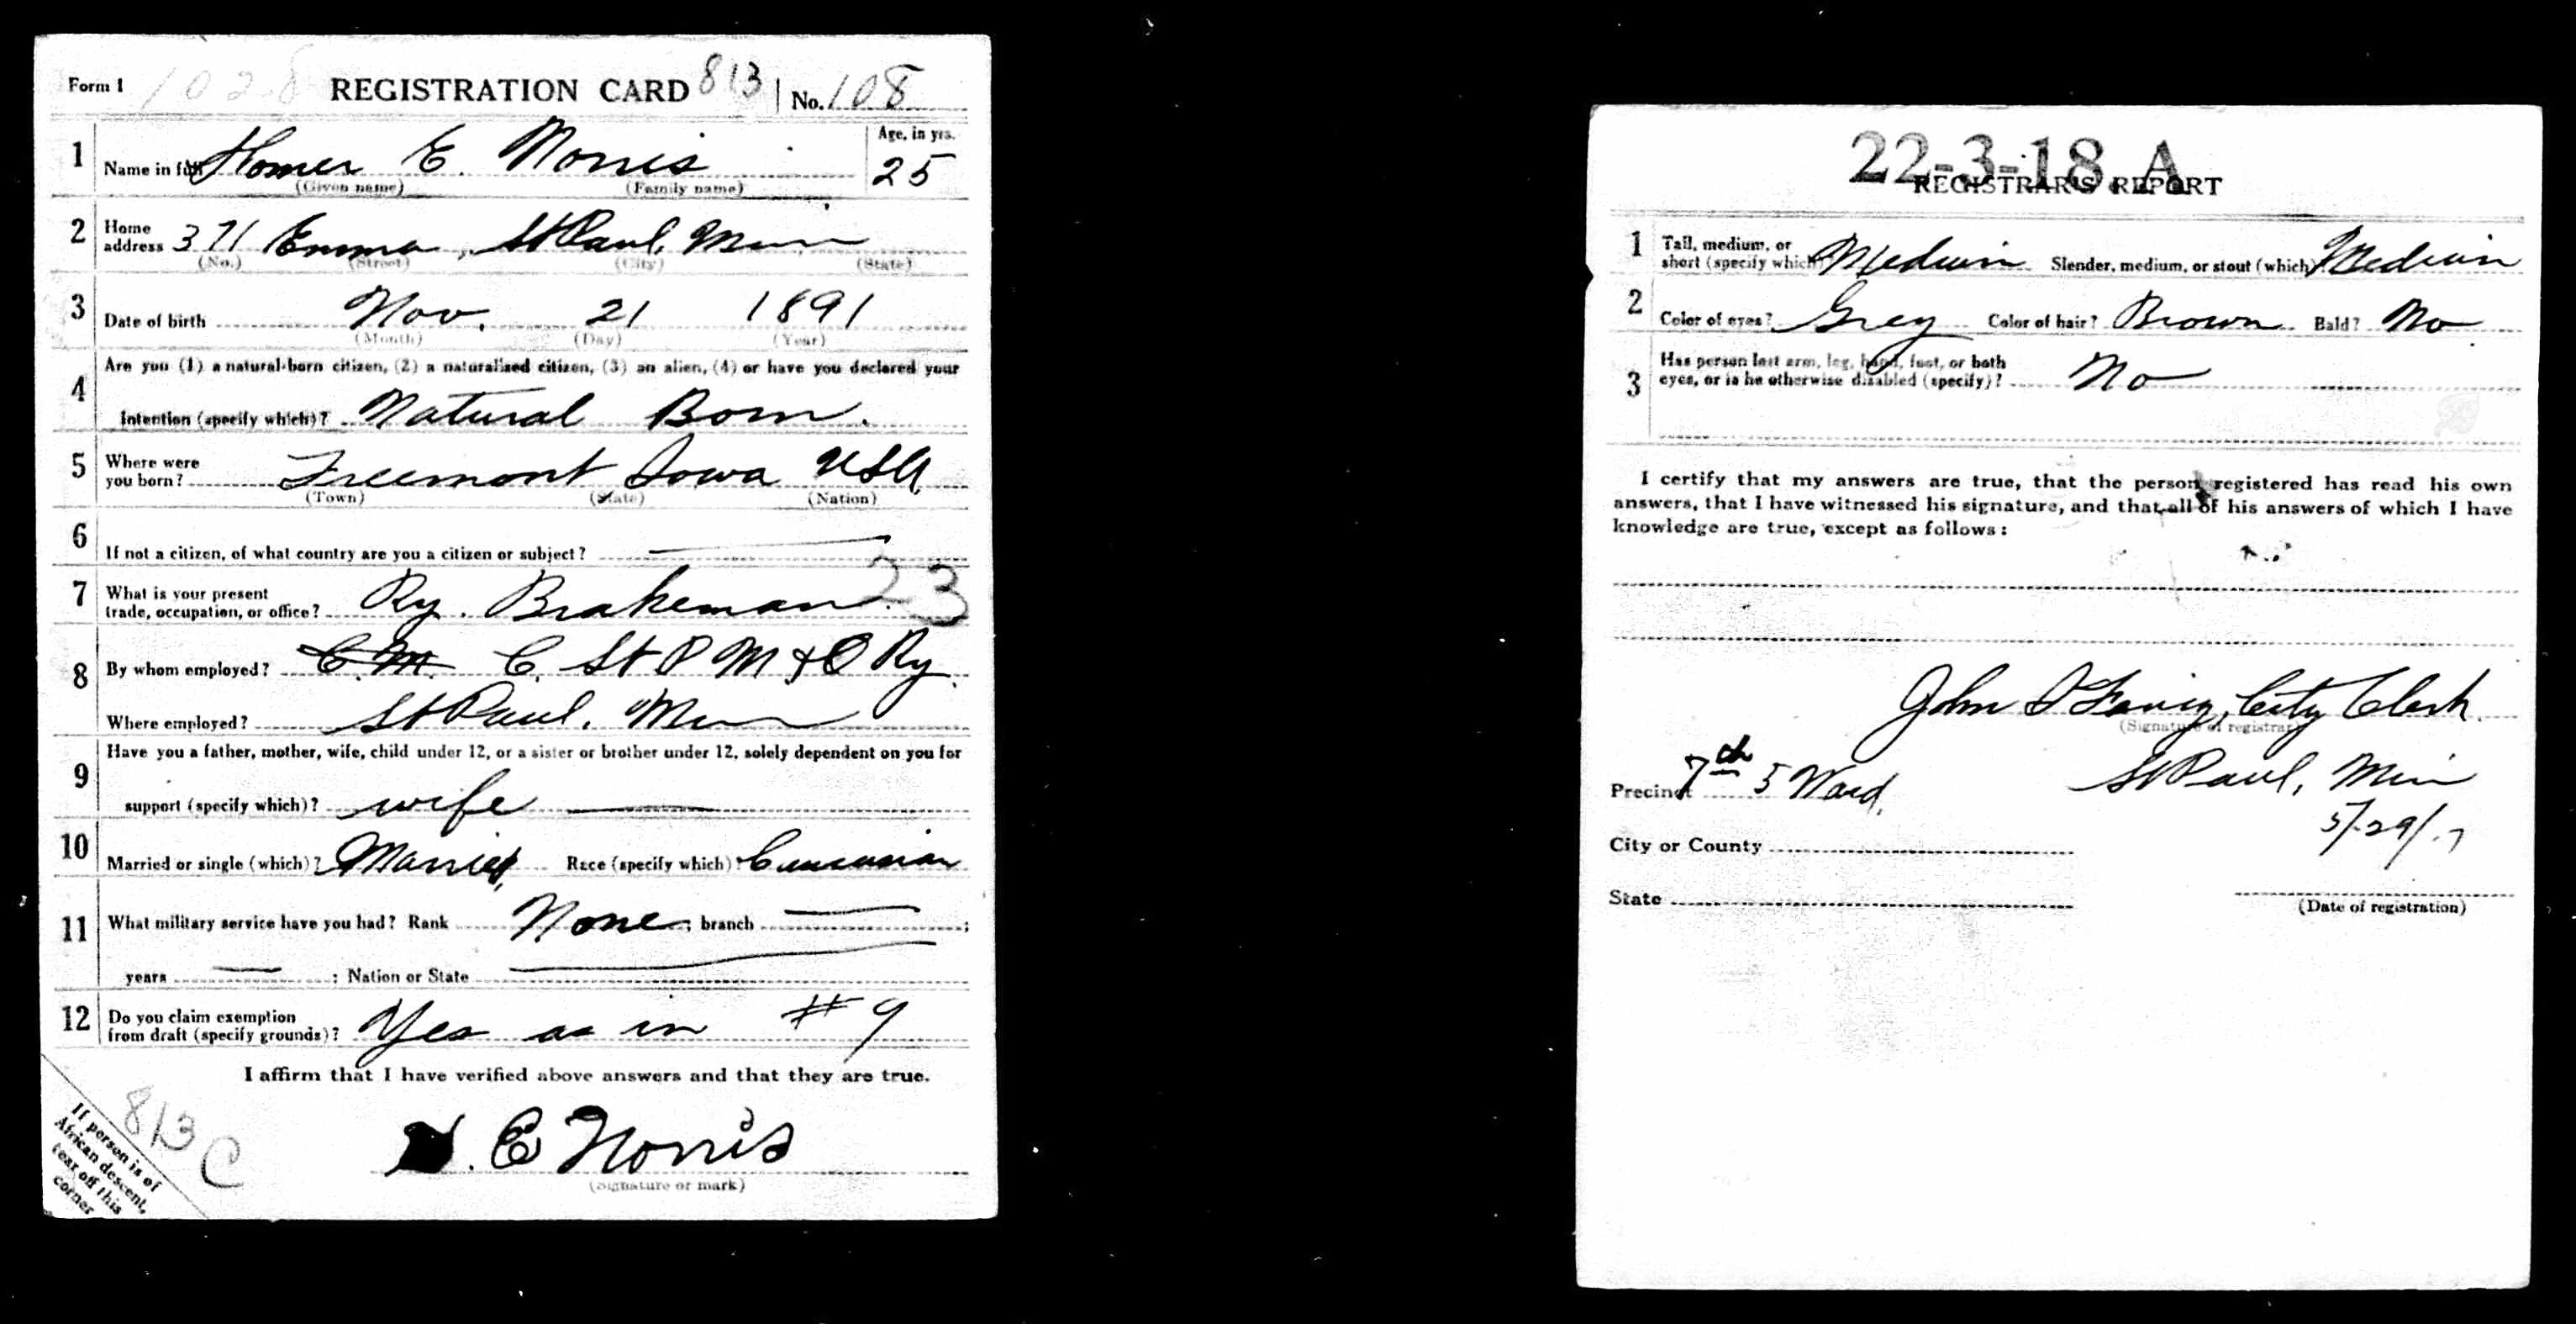 Form 1 1028 REGISTRATION CARD 813 No. 108
1 Name in full Homer E. Norris Age, in yrs. 25
(Given name) (Family name)
2 Home address 371 Emma, St Paul, Minn
(No.) (Street) (City) (State)
3 Date of birth Nov. 21 1891
(Month) (Day) (Year)
4 Are you (1) a natural-born citizen, (2) a naturalized citizen, (3) an alien, (4) or have you declared your
intention (specify which)? Natural Born.
5 Where were you born? Freemont Iowa USA
(Town) (State) (Nation)
6 If not a citizen, of what country are you a citizen or subject?
7 What is your present trade, occupation, or office? Ry. Brakeman. 23
8 By whom employed? C. M. C. St P M & O Ry.
Where employed? St Paul, Minn
9 Have you a father, mother, wife, child under 12, or a sister or brother under 12, solely dependent on you for
support (specify which)? wife
10 Married or single (which)? Married, Race (specify which)? Caucasian
11 What military service have you had? Rank None; branch ;
years ; Nation or State
12 Do you claim exemption from draft (specify grounds)? Yes as in #9
I affirm that I have verified above answers and that they are true.
H. E Norris
(Signature or mark)
If person is of
African descent,
tear off this
corner
813 C
22-3-18. A
REGISTRAR'S REPORT
1 Tall, medium, or short (specify which)? Medium Slender, medium, or stout (which)? Medium
2 Color of eyes? Grey Color of hair? Brown Bald? No
3 Has person lost arm, leg, hand, foot, or both
eyes, or is he otherwise disabled (specify)? No
I certify that my answers are true, that the person registered has read his own
answers, that I have witnessed his signature, and that all of his answers of which I have
knowledge are true, except as follows:
John I Faricy, City Clerk.
(Signature of registrar)
Precinct 7th 5 Ward, St Paul, Min
City or County 5/29/17
State
(Date of registration)